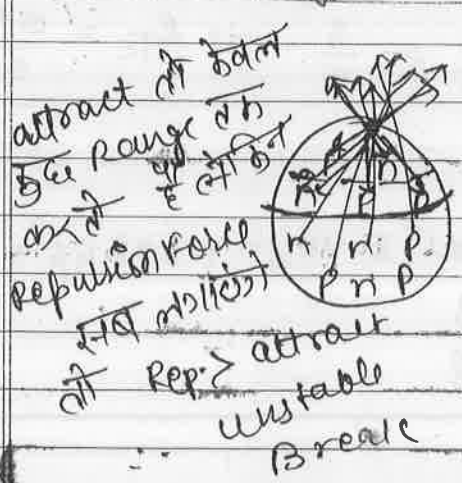 attract तो केवल
कुछ Range तक
करते है लेकिन
Repulsion Force
सब लगाएंगे
तो Rep. > attract
unstable
Break
P n
n P
n n P
P n P